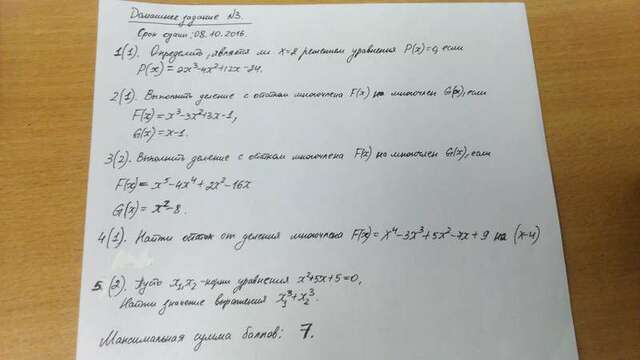 Домашнее задание №3.
Срок сдачи: 08.10.2016.
1(1). Определить, является ли x=2 решением уравнения P(x)=0, если
P(x) = 2x³-4x²+12x-24.
2(1). Выполнить деление с остатком многочлена F(x) на многочлен G(x), если
F(x) = x³-3x²+3x-1,
G(x) = x-1.
3(2). Выполнить деление с остатком многочлена F(x) на многочлен G(x), если
F(x) = x⁵-4x⁴+2x²-16x
G(x) = x²-8.
4(1). Найти остаток от деления многочлена F(x) = x⁴-3x³+5x²-7x+9 на (x-4)
5(2). Пусть x₁,x₂-корни уравнения x²+5x+5=0,
Найти значение выражения x₁³+x₂³.
Максимальная сумма баллов: 7.